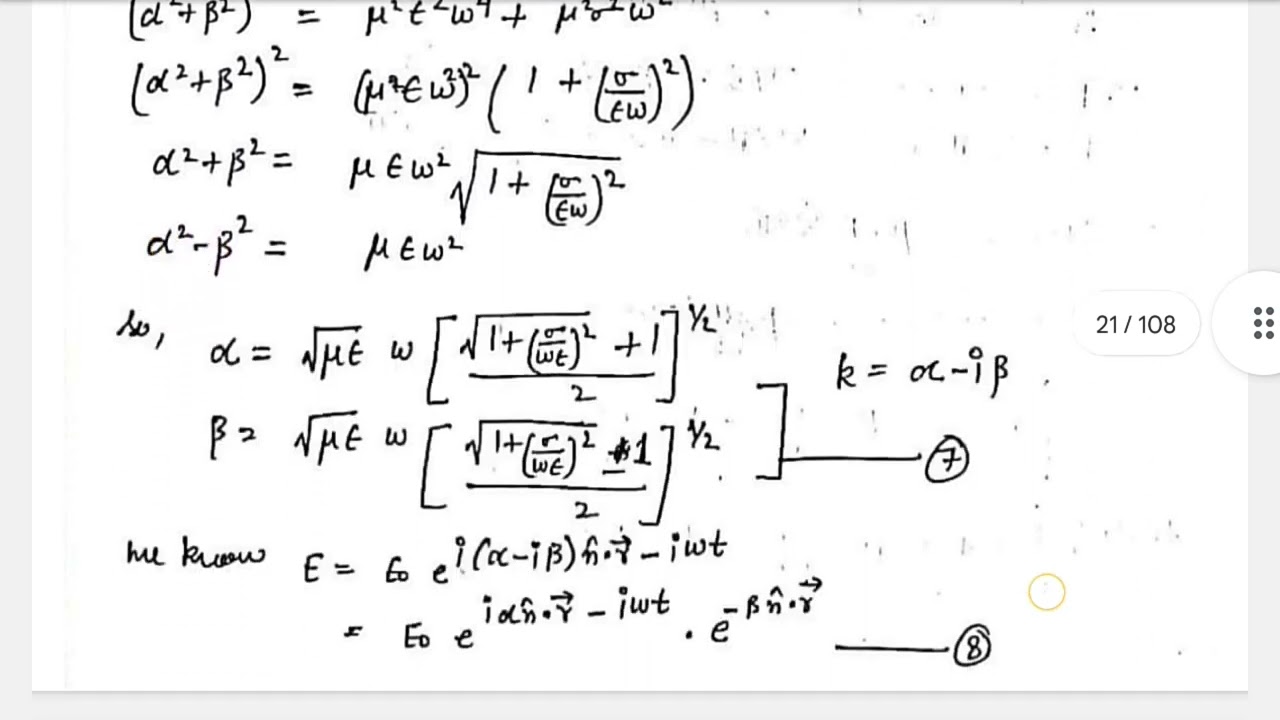 (α²+β²) = μ²ε²ω⁴ + μ²σ²ω²
(α²+β²)² = (μ²εω²)² (1 + (σ/εω)²)
α²+β² = μεω² √(1 + (σ/εω)²)
α²-β² = μεω²
so, α = √με ω [(√(1+(σ/ωε)²) + 1)/2]^1/2
k = α-iβ
β = √με ω [(√(1+(σ/ωε)²) - 1)/2]^1/2 ⑦
we know E = E₀ e^i(α-iβ)n̂·r⃗ - iωt
= E₀ e^iαn̂·r⃗ - iωt · e^-βn̂·r⃗ ⑧
21 / 108